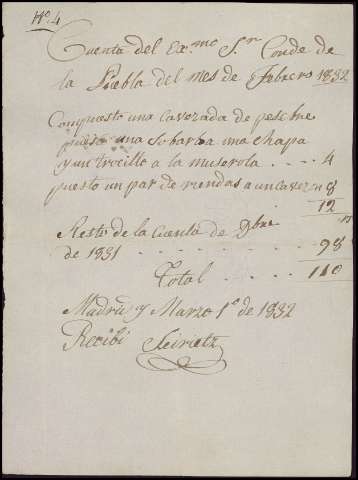 Nº. 4
Cuenta del Ex.mo S.r Conde de
la Puebla del mes de Febrero 1832
Compuesto una cavezada de pesebre
puesto una sobarba una chapa
y un trocillo a la muserola . . . . 4
puesto un par de riendas a un cavezon 8
12
Resto de la Cuenta de 9bre
de 1831 . . . . . . . . . . . 98
Total . . . . 110
Madrid y Marzo 1º de 1832
Recibi